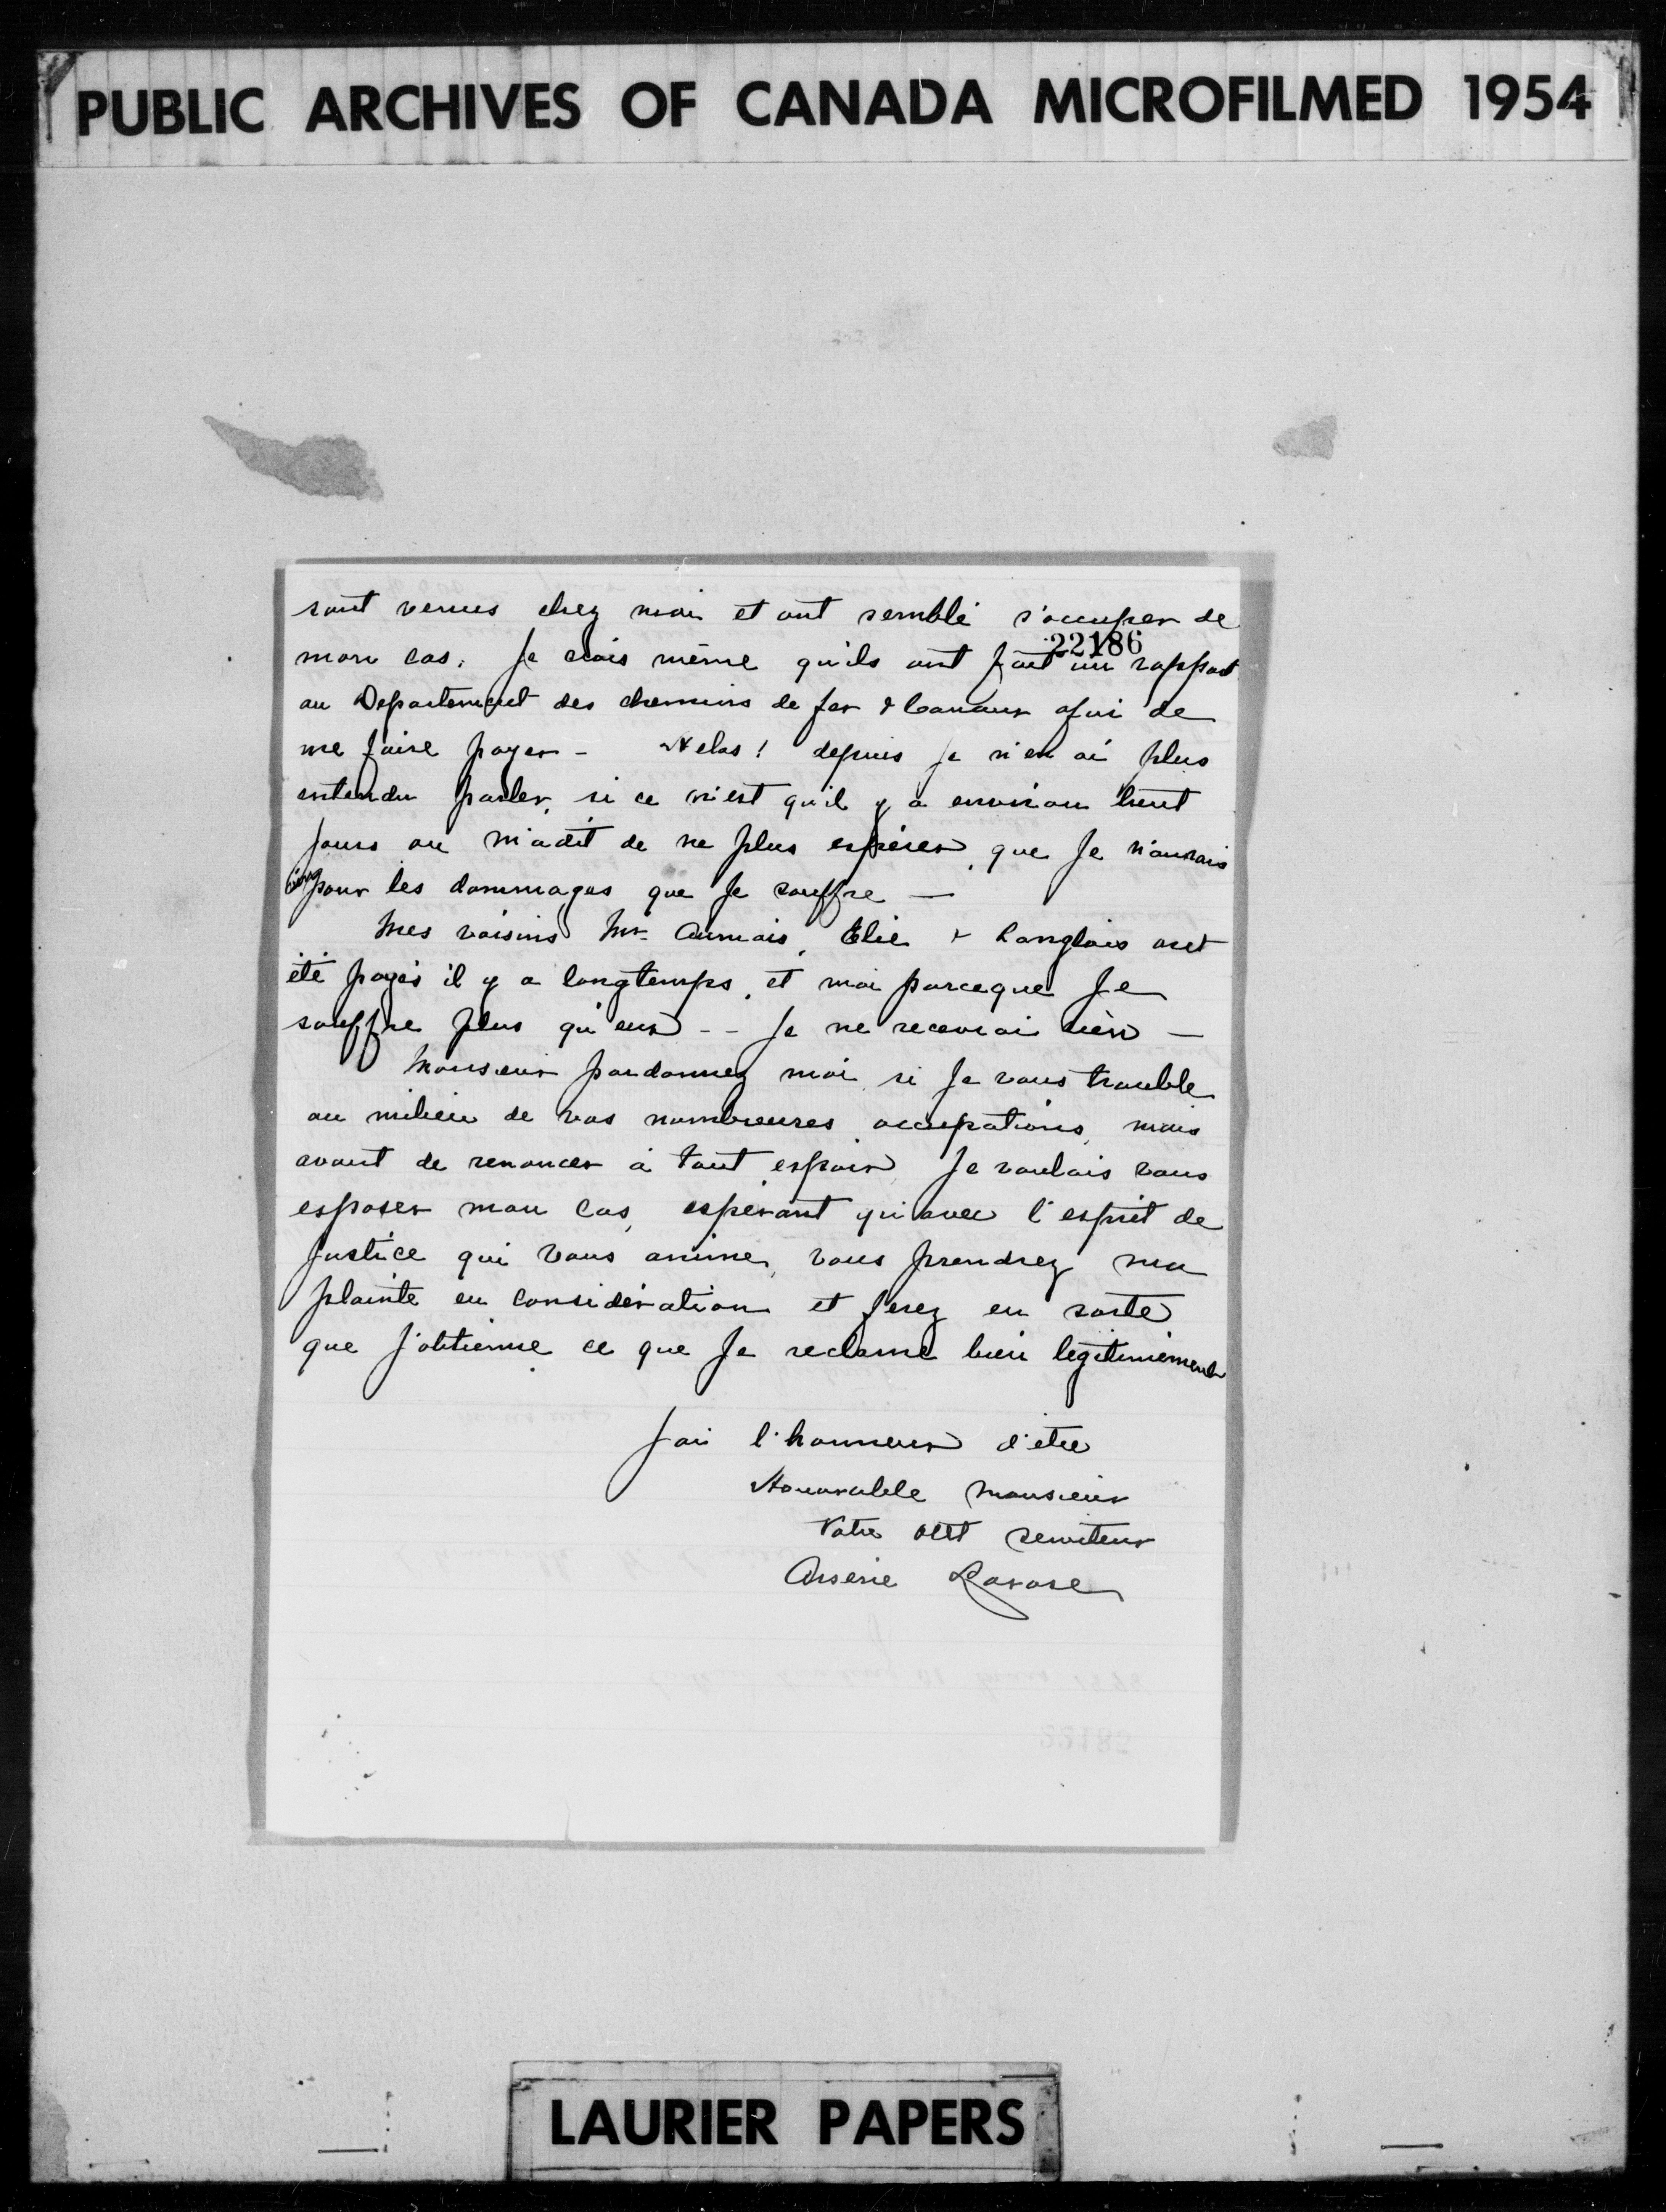 PUBLIC ARCHIVES OF CANADA MICROFILMED 1954
sont venus chez moi et ont semblé s'occuper de
22186
mon cas. Je crois même qu'ils ont fait un rapport
au Departement des chemins de fer & Canaux afin de
me faire payer - Helas! depuis je n'en ai plus
entendu parler, si ce n'est qu'il y a environ huit
jours on m'a dit de ne plus espérer, que je n'aurais
pour les dommages que je souffre —
Mes voisins Mr. Aumais, Elie & Langlois ont
été payés il y a longtemps, et moi parceque je
souffre plus qu'eux -- je ne recevrai rien —
Monsieur pardonnez moi si je vous trouble
au milieu de vos nombreuses occupations, mais
avant de renoncer à tout espoir, je voulais vous
exposer mon cas, espérant qu'avec l'esprit de
justice qui vous anime, vous prendrez ma
plainte en considération et ferez en sorte
que j'obtienne ce que je reclame bien légitimement
J'ai l'honneur d'être
Honorable Monsieur
Votre obt serviteur
Arsène
LAURIER PAPERS